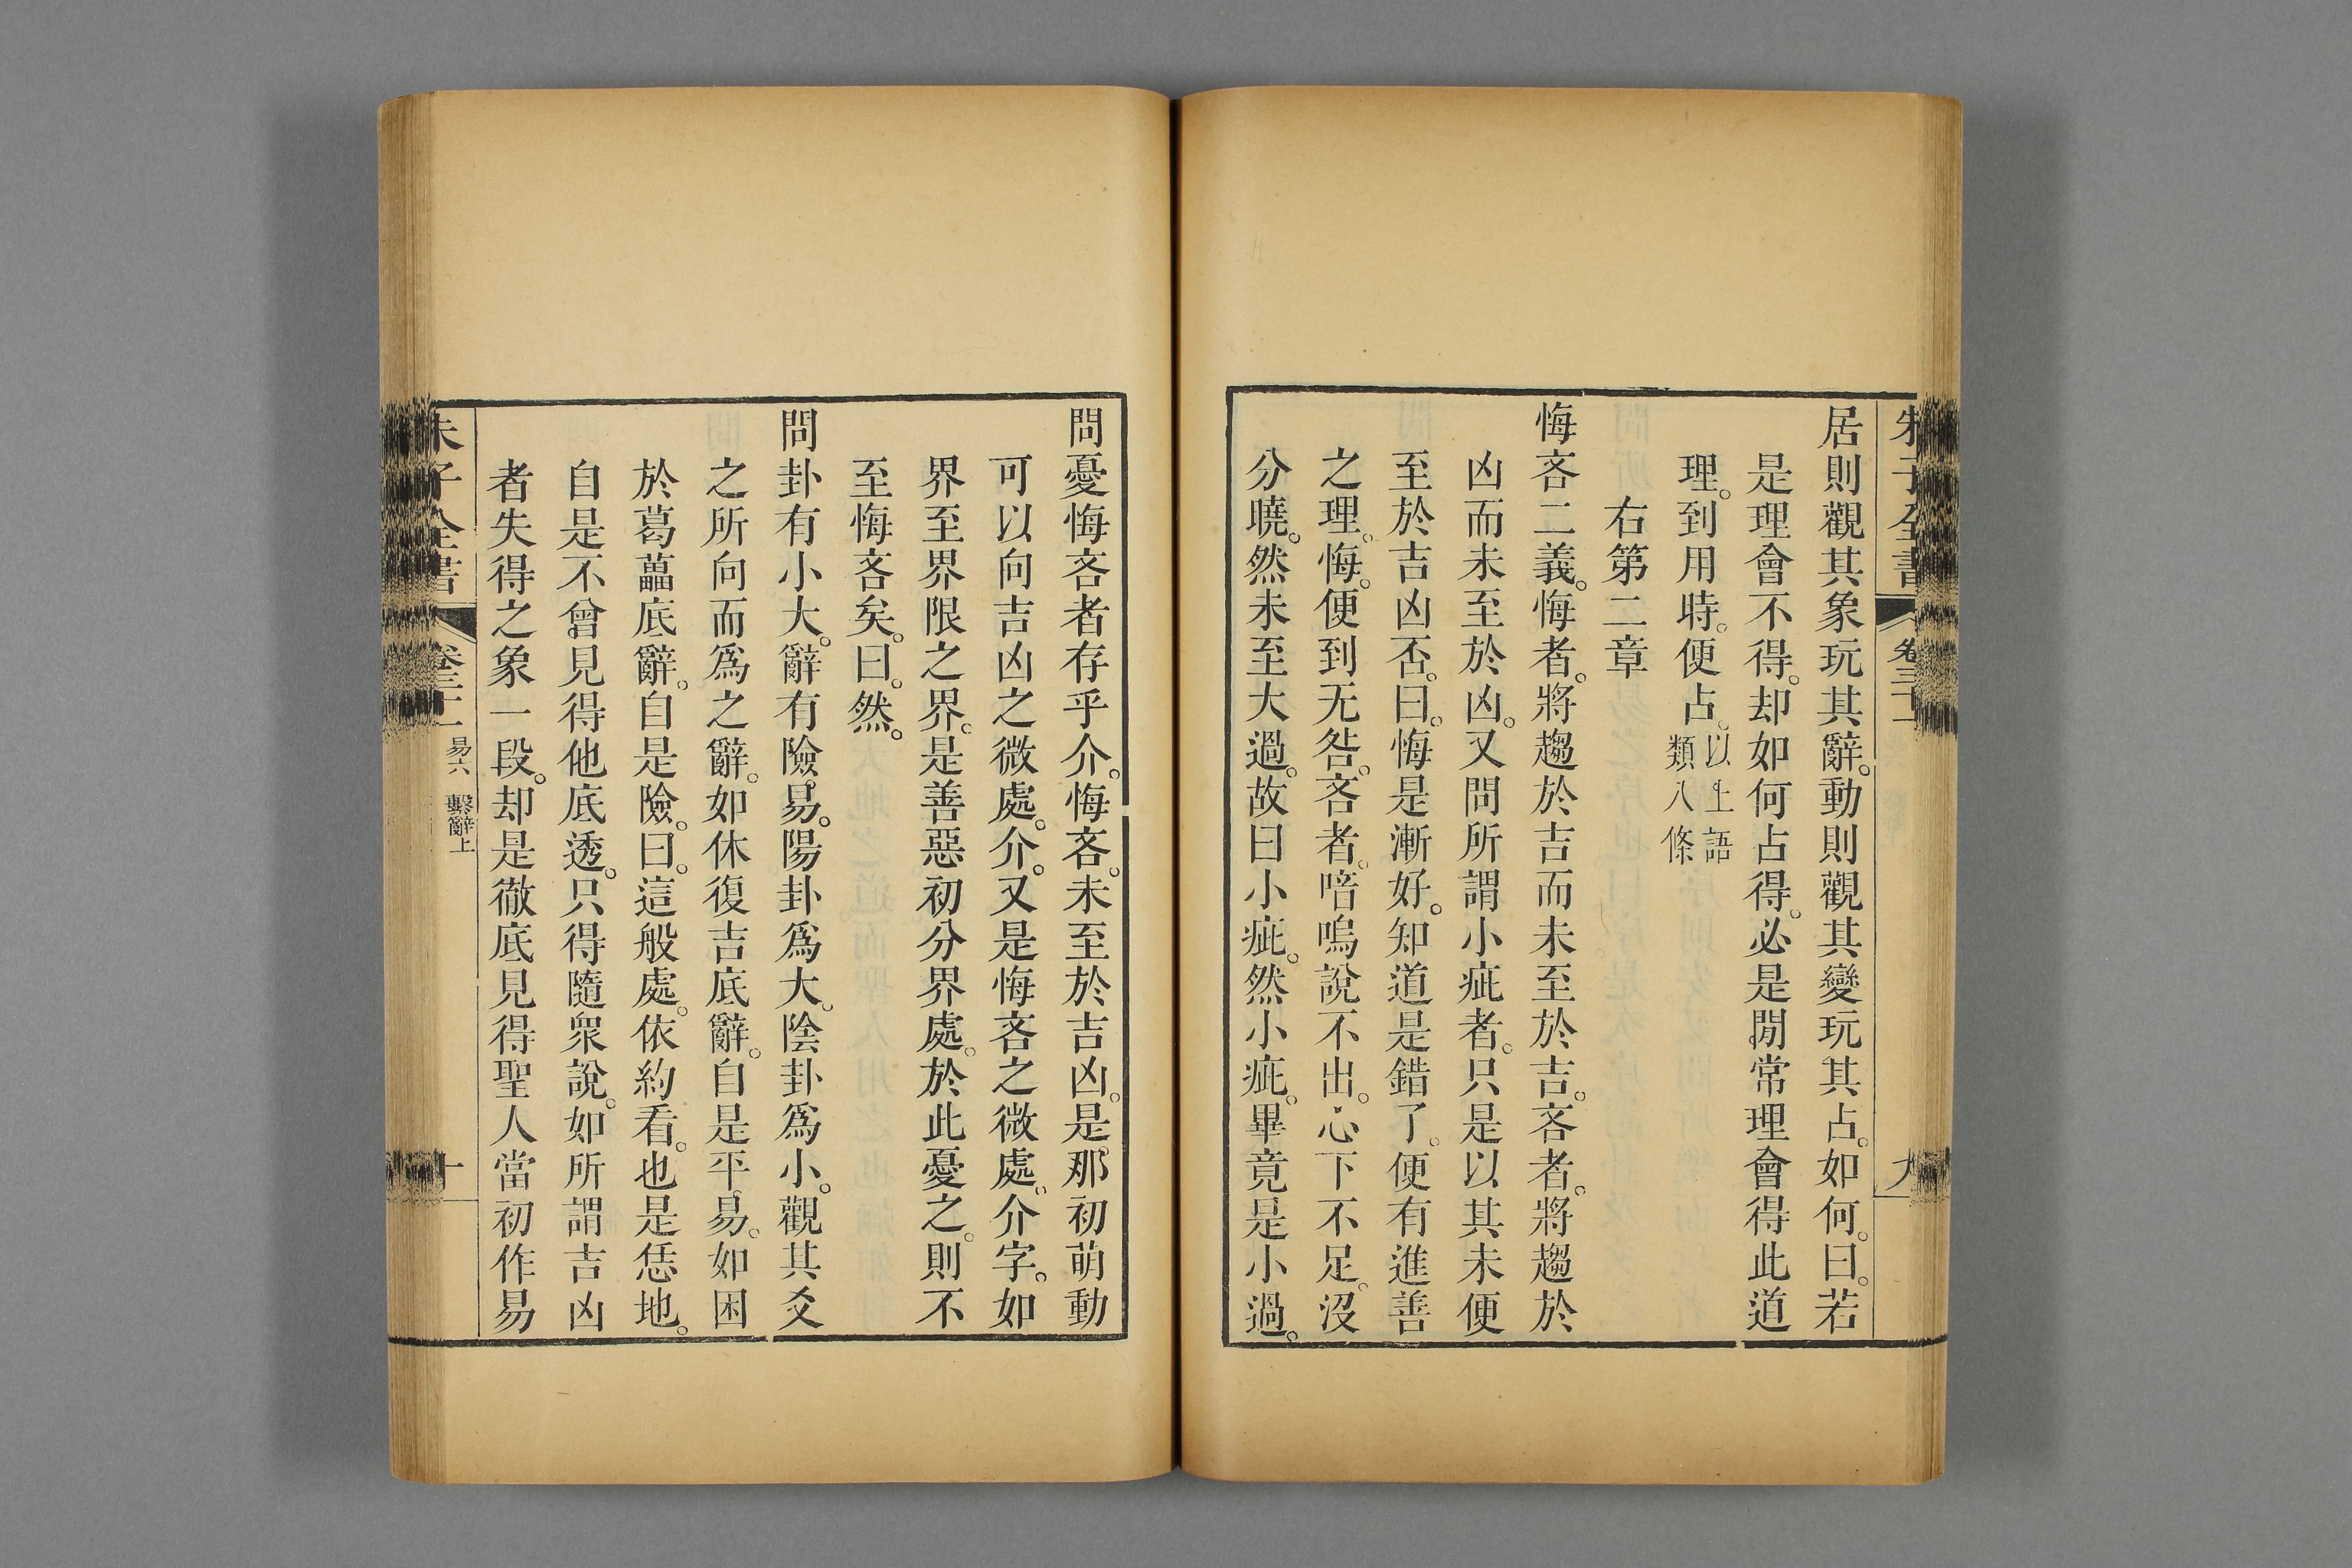 居則觀其象玩其辭。動則觀其變玩其占。如何。曰。若
是理會不得。却如何占得。必是閒常理會得此道
理。到用時。便占。以上語類八條
右第二章
悔吝二義。悔者。將趨於吉而未至於吉。吝者。將趨於
凶而未至於凶。又問所謂小疵者。只是以其未便
至於吉凶否。曰。悔是漸好。知道是錯了。便有進善
之理。悔。便到无咎。吝者。喑嗚說不出。心下不足。沒
分曉。然未至大過。故曰小疵。然小疵。畢竟是小過。
問憂悔吝者存乎介。悔吝。未至於吉凶。是那初萌動
可以向吉凶之微處。介。又是悔吝之微處。介字。如
界至界限之界。是善惡初分界處。於此憂之。則不
至悔吝矣。曰。然。
問卦有小大。辭有險易。陽卦爲大。陰卦爲小。觀其爻
之所向而爲之辭。如休復吉底辭。自是平易。如困
於葛藟底辭。自是險。曰。這般處。依約看。也是恁地。
自是不曾見得他底透。只得隨衆說。如所謂吉凶
者失得之象一段。却是徹底見得聖人當初作易
朱子全書 卷三十一 易六 繫辭上 十